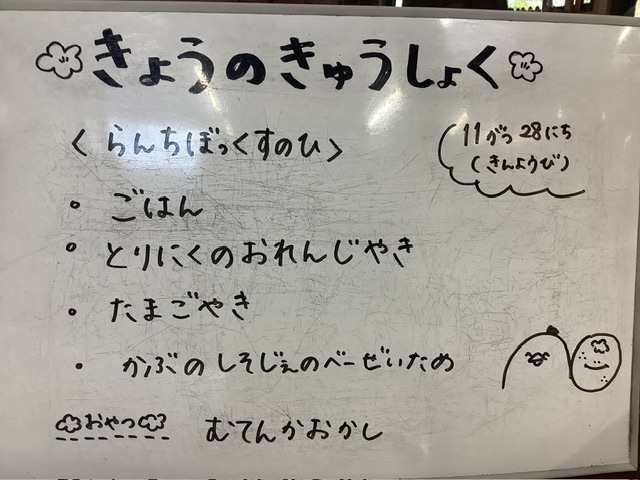 きょうのきゅうしょく
11がつ28にち
(きんようび)
〈らんちぼっくすのひ〉
・ごはん
・とりにくのおれんじやき
・たまごやき
・かぶのしそじぇのべーぜいため
おやつ むてんかおかし